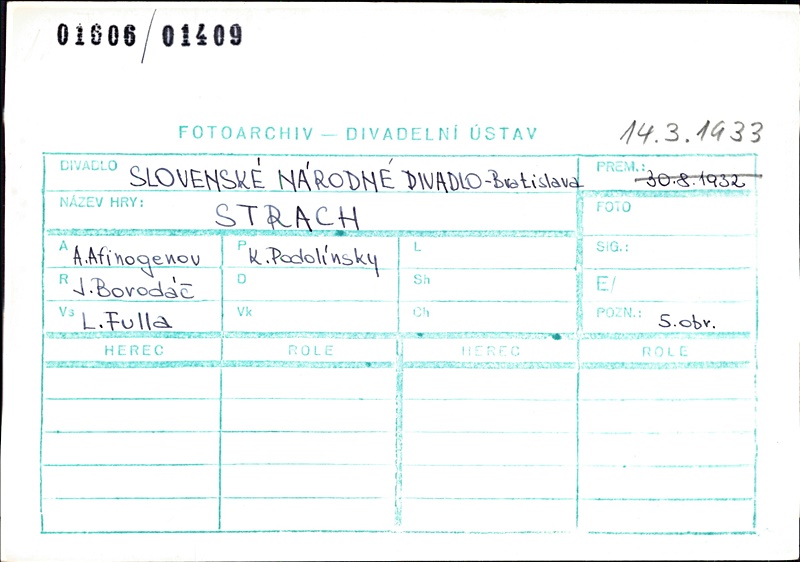 01606/01409
FOTOARCHIV — DIVADELNÍ ÚSTAV
14.3.1933
DIVADLO SLOVENSKÉ NÁRODNÉ DIVADLO-Bratislava
PREM.: 30.8.1932
NÁZEV HRY: STRACH
FOTO
A A.Afinogenov
P K.Podolínsky
L
SIG.:
R J.Borodáč
D
Sh
E/
Vs L.Fulla
Vk
Ch
POZN.: 5.obr.
HEREC ROLE HEREC ROLE